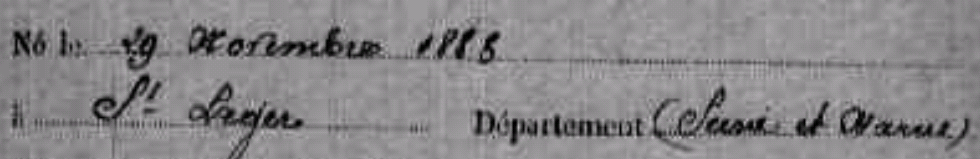 Né le 29 Novembre 1885
à St Leger Département (Seine et Marne)